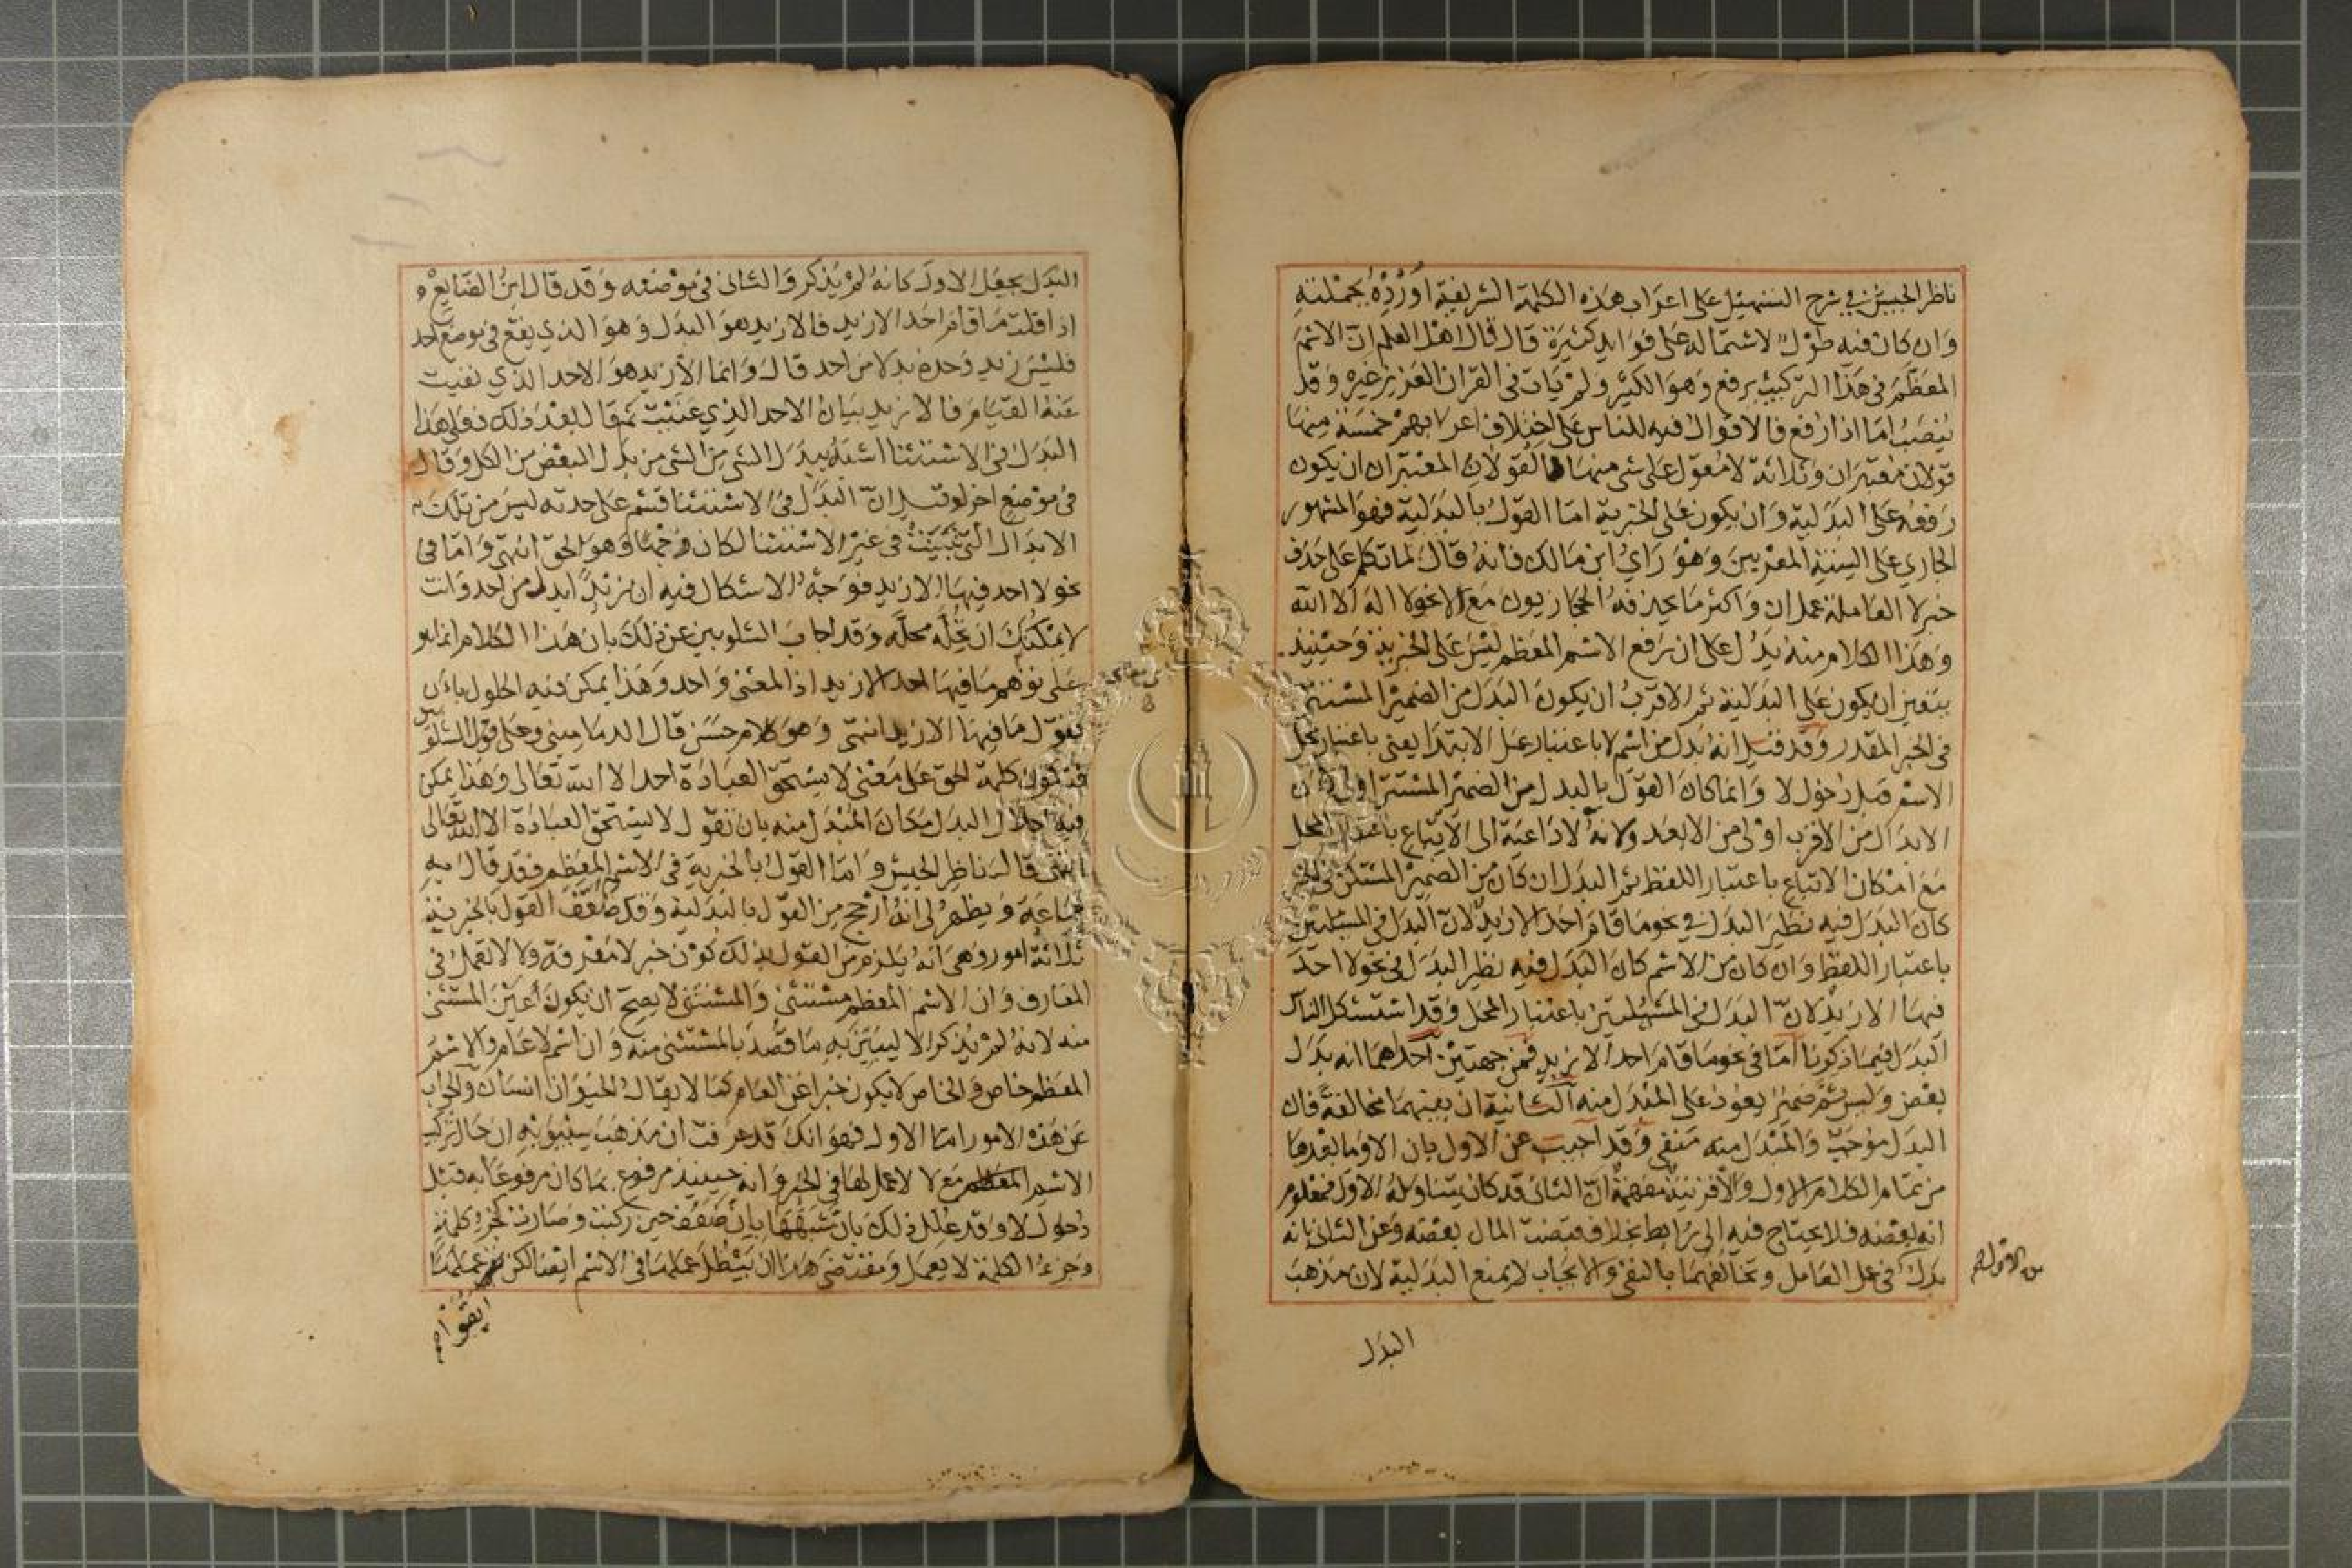 ناظر الجيش في شرح التسهيل على اعراب هذه الكلمة الشريفة اورده بجملته
وان كان فيه طول لاشتماله على فوايد كثيرة قال قال اهل العلم ان الاسم
المعظم في هذا التركيب يرفع وهو الكثير ولم يات في القران العزيز غيره وقد
ينصب اما اذا رفع فالاقوال فيه للناس على اختلاف اعرابهم خمسة منها
قولان معتبران وثلاثة لا معول على شي منها القولان المعتبران ان يكون
رفعه على البدلية وان يكون على الخبرية اما القول بالبدلية فهو المشهور
الجاري على السنة المعربين وهو راي ابن مالك فانه قال لما تكلم على حذف
خبر لا العاملة عمل ان واكثر ما يحذفه الحجازيون مع الا نحو لا اله الا الله
وهذا الكلام منه يدل على ان رفع الاسم المعظم ليس على الخبرية وحينيذ
يتعين ان يكون على البدلية ثم الاقرب ان يكون البدل من الضمير المستتر
في الخبر المقدر وقد قيل انه بدل من اسم لا باعتبار عمل الابتدا يعني باعتبار محل
الاسم قبل دخول لا وانما كان القول بالبدل من الضمير المستتر اولى لان
الابدال من الاقرب اولى من الابعد ولانه لا داعية الى الاتباع باعتبار المحل
مع امكان الاتباع باعتبار اللفظ ثم البدل ان كان من الضمير المستكن في الخبر
كان البدل فيه نظير البدل في نحو ما قام احد الا زيد لان البدل في المسئلتين
باعتبار اللفظ وان كان من الاسم كان البدل فيه نظير البدل في نحو لا احد
فيها الا زيد لان البدل في المسئلتين باعتبار المحل وقد استشكل الناس
البدل فيما ذكرنا اما في نحو ما قام احد الا زيد فمن جهتين احداهما انه بدل
بعض وليس ثم ضمير يعود على المبدل منه الثانية ان بينهما مخالفة فان
البدل موجب والمبدل منه منفي وقد اجيب عن الاول بان الا وما بعدها
من تمام الكلام الاول والا قرينة مفهمة ان الثاني قد كان يتناوله الاول فمعلوم
انه بعضه فلا يحتاج فيه الى رابط بخلاف قبضت المال بعضه وعن الثاني بانه
بدل من الاول في عمل العامل وتخالفهما بالنفي والايجاب لا يمنع البدلية لان مذهب
البدل
البدل يجعل الاول كانه لم يذكر والثاني في موضعه وقد قال ابن الضايع
اذا قلت ما قام احد الا زيد فالا زيد هو البدل وهو الذي يقع في موضع احد
فليس زيد وحده بدلا من احد قال وانما الا زيد هو الاحد الذي نفيت
عنه القيام فالا زيد بيان الاحد الذي عنيت ثم قال بعد ذلك فعلى هذا
البدل في الاستثنا اشبه ببدل الشي من الشي من بدل البعض من الكل وقال
في موضع اخر لو قيل ان البدل في الاستثنا قسم على حدته ليس من تلك
الابدال التي تبينت في غير الاستثنا لكان وجها وهو الحق انتهى واما في
نحو لا احد فيها الا زيد فوجه الاشكال فيه ان زيدا بدل من احد وانت
لا يمكنك ان تحله محله وقد اجاب الشلوبين عن ذلك بان هذا الكلام انما هو
على توهم ما فيها احد الا زيد اذ المعنى واحد وهذا يمكن فيه الحلول بان
تقول ما فيها الا زيد انتهى وهو كلام حسن قال الدماميني وعلى قول الشلوبين
فتكون كلمة الحق على معنى لا يستحق العبادة احد الا الله تعالى وهذا يمكن
فيه احلال البدل مكان المبدل منه بان تقول لا يستحق العبادة الا الله تعالى
انتهى قال ناظر الجيش واما القول بالخبرية في الاسم المعظم فقد قال به
جماعة ويظهر لي انه ارجح من القول بالبدلية وقد ضعف القول بالخبرية
ثلاثة امور وهي انه يلزم من القول بذلك كون خبر لا معرفة ولا لا تعمل في
المعارف وان الاسم المعظم مستثنى والمستثنى لا يصح ان يكون عين المستثنى
منه لانه لم يذكر الا ليبين به ما قصد بالمستثنى منه وان اسم لا عام والاسم
المعظم خاص والخاص لا يكون خبرا عن العام كما لا يقال الحيوان انسان والجواب
عن هذه الامور اما الاول فهو انك قد عرفت ان مذهب سيبويه ان حال تركيب
الاسم المعظم مع لا لا عمل لها في الخبر وانه حينيذ مرفوع بما كان مرفوعا به قبل
دخول لا وقد علل ذلك بان شبهها بان ضعف حين ركبت وصارت كجزء كلمة
وجزء الكلمة لا يعمل ومقتضى هذا ان يبطل عملها في الاسم ايضا لكن